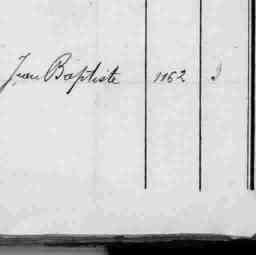 Jean Baptiste 1862